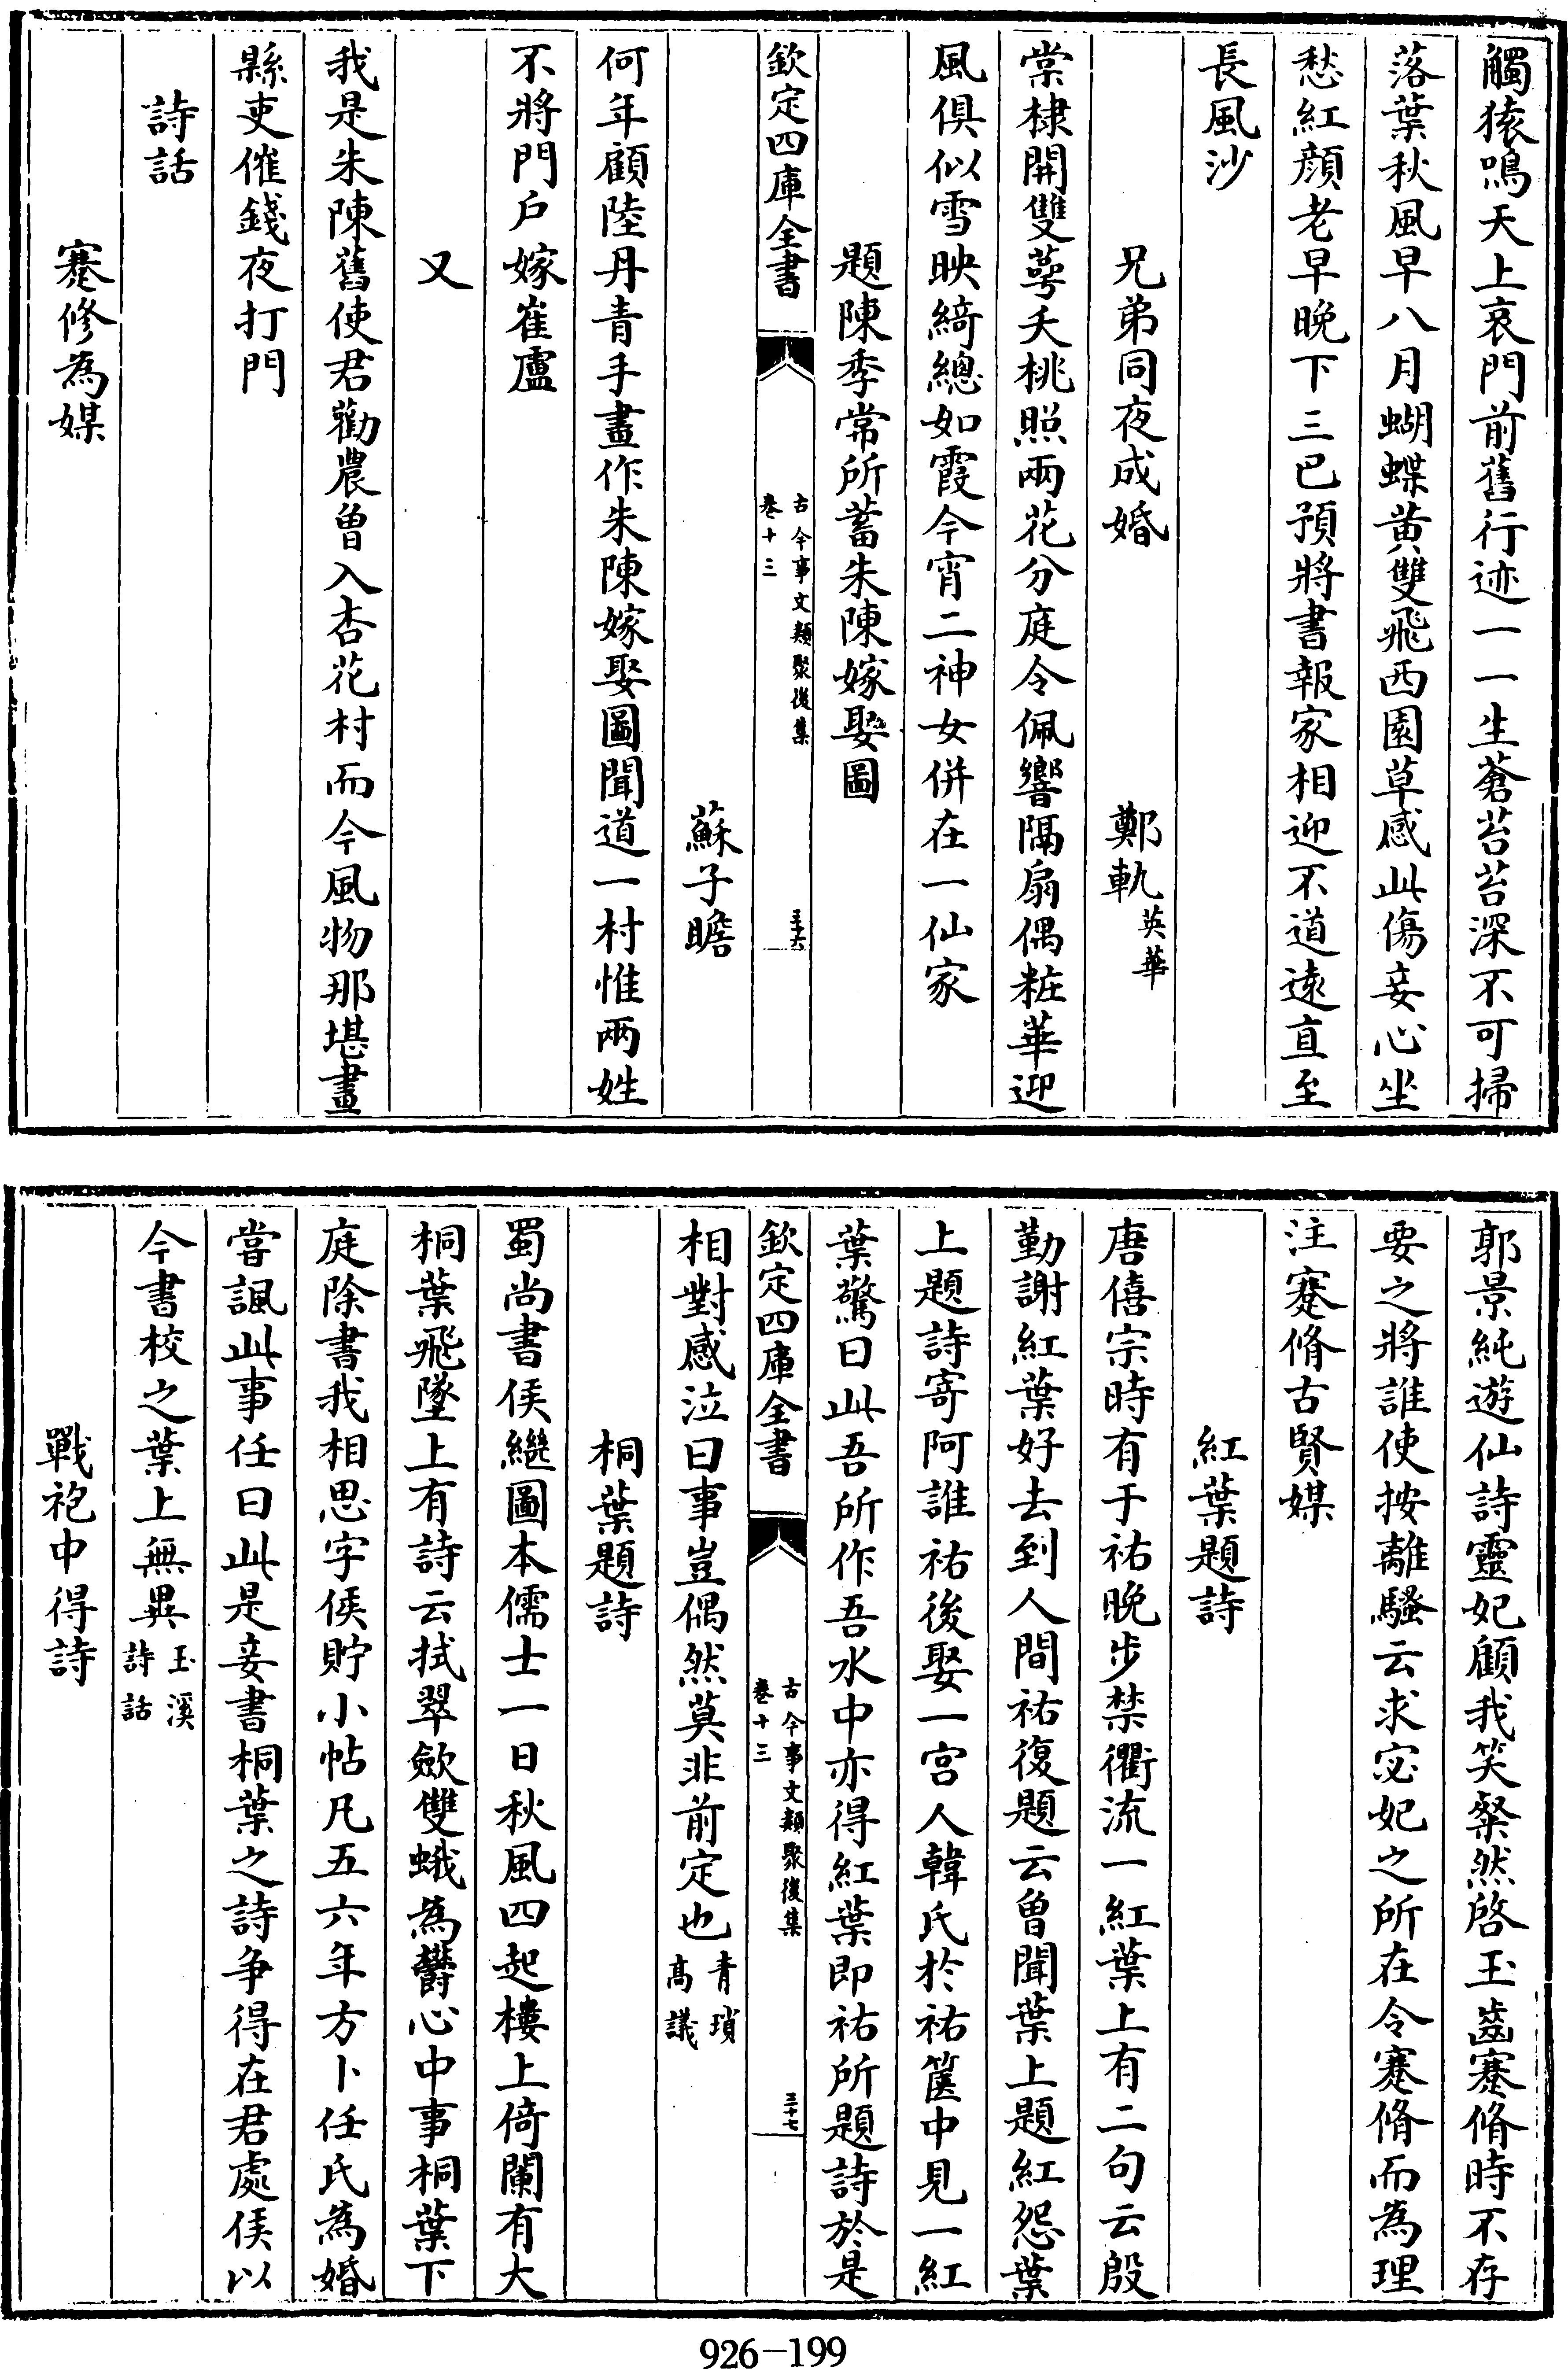 觸猿鳴天上哀門前舊行迹一一生蒼苔苔深不可掃
落葉秋風早八月蝴蝶黃雙飛西園草感此傷妾心坐
愁紅顔老早晚下三巴預將書報家相迎不道遠直至
長風沙
兄弟同夜成婚 鄭軌英華
棠棣開雙萼夭桃照兩花分庭令佩響隔扇偶粧華迎
風俱似雪映綺總如霞今宵二神女併在一仙家
題陳季常所蓄朱陳嫁娶圖
欽定四庫全書 古今事文類聚後集 卷十三 三十六
蘇子瞻
何年顧陸丹青手畫作朱陳嫁娶圖聞道一村惟兩姓
不將門戶嫁崔盧
又
我是朱陳舊使君勸農曾入杏花村而今風物那堪畫
縣吏催錢夜打門
詩話
蹇修為媒
郭景純遊仙詩靈妃顧我笑粲然啓玉齒蹇脩時不存
要之將誰使按離騷云求宓妃之所在令蹇脩而為理
注蹇脩古賢媒
紅葉題詩
唐僖宗時有于祐晚步禁衢流一紅葉上有二句云殷
勤謝紅葉好去到人間祐復題云曾聞葉上題紅怨葉
上題詩寄阿誰祐後娶一宫人韓氏於祐篋中見一紅
葉驚曰此吾所作吾水中亦得紅葉即祐所題詩於是
欽定四庫全書 古今事文類聚後集 卷十三 三十七
相對感泣曰事豈偶然莫非前定也青瑣高議
桐葉題詩
蜀尚書侯繼圖本儒士一日秋風四起樓上倚闌有大
桐葉飛墜上有詩云拭翠斂雙蛾為鬱心中事桐葉下
庭除書我相思字侯貯小帖凡五六年方卜任氏為婚
嘗諷此事任曰此是妾書桐葉之詩争得在君處侯以
今書校之葉上無異玉溪詩話
戰袍中得詩
926-199